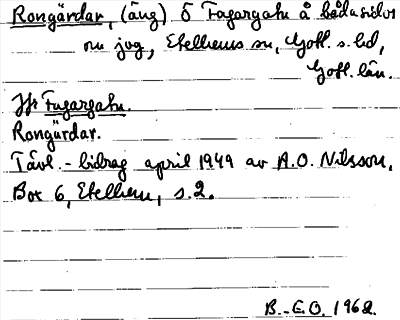 Rongärdar, (äng) Ö Fagargahu å båda sidor
om jvg, Etelhems sn, Gotl. s. hd,
Gotl. län.
Jfr Fagargahu.
Rongärdar.
Tävl.-bidrag april 1949 av A.O. Nilsson,
Box 6, Etelhem, s.2.
B.-E.O. 1962.